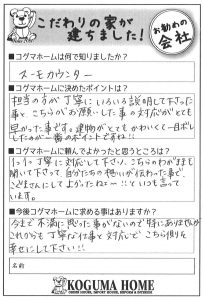 こだわりの家が
建ちました!
お勧めの
会社
■コグマホームは何で知りましたか?
スーモカウンター
■コグマホームに決めたポイントは?
担当の方が丁寧にいろいろ説明して下さった
事と こちらがお願いした事の対応がとても
早かった事です。建物がとてもかわいくて一目ボレ
したのが一番のポイントですね!
■コグマホームに頼んでよかったと思うところは?
1つ1つ丁寧に対応して下さり、こちらのわがままも
聞いて下さって 自分たちの想いが伝わった事で、
ご主人にしてよかったねー!!といつも言って
います。
■今後コグマホームに求める事はありますか?
今まで不満に思った事がないので特にありませんが
これからも丁寧な仕事と対応でこちら側を
幸せにして下さい!!
名前
KOGUMA HOME